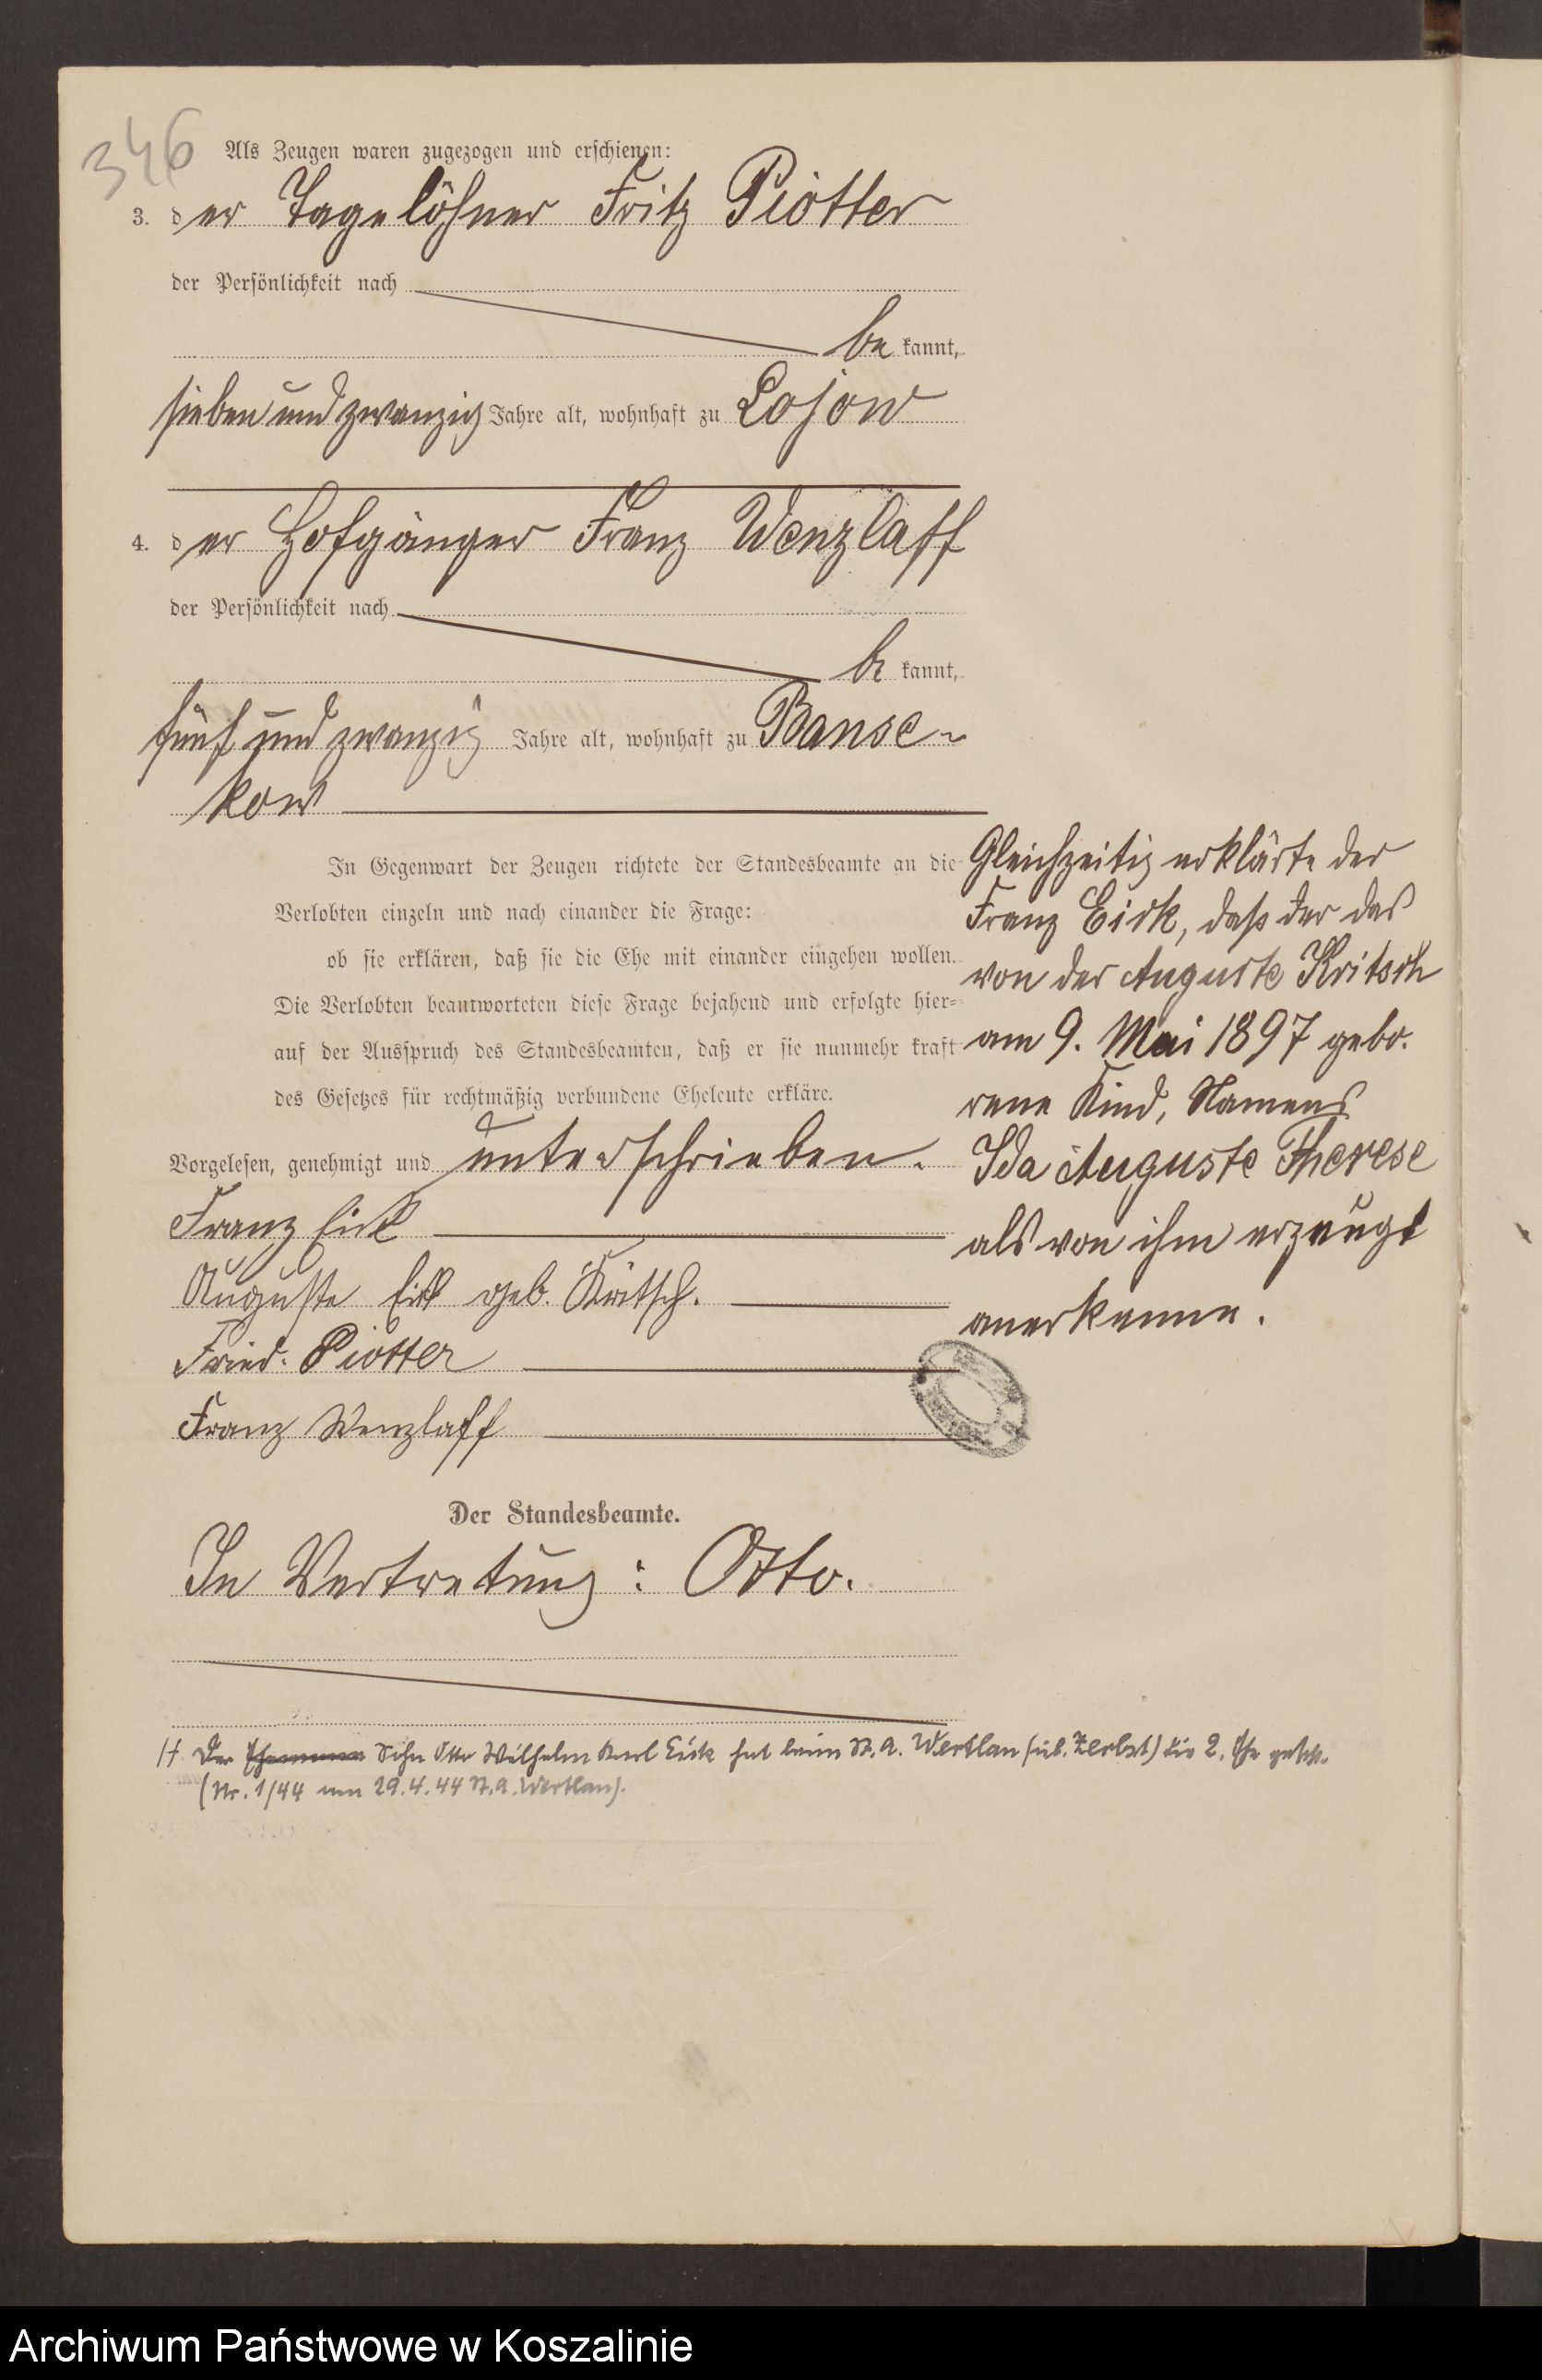 346
Als Zeugen waren zugezogen und erschienen:
3. der Tagelöhner Fritz Piotter
der Persönlichkeit nach
be kannt,
sieben und zwanzig Jahre alt, wohnhaft zu Lojow
4. der Hofgänger Franz Wenzlaff
der Persönlichkeit nach
be kannt,
fünf und zwanzig Jahre alt, wohnhaft zu Banse-
kow
In Gegenwart der Zeugen richtete der Standesbeamte an die
Verlobten einzeln und nach einander die Frage:
ob sie erklären, daß sie die Ehe mit einander eingehen wollen.
Die Verlobten beantworteten diese Frage bejahend und erfolgte hier=
auf der Ausspruch des Standesbeamten, daß er sie nunmehr kraft
des Gesetzes für rechtmäßig verbundene Eheleute erkläre.
Vorgelesen, genehmigt und unterschrieben.
Franz Eick
Auguste Eick geb. Kritsch.
Fried. Piotter
Franz Wenzlaff
Gleichzeitig erklärte der
Franz Eick, daß der das
von der Auguste Kritsch
am 9. Mai 1897 gebo.
rene Kind, Namens
Ida Auguste Therese
als von ihm erzeugt
anerkenne.
Der Standesbeamte.
In Vertretung: Otto.
1) Der Sohn Otto Wilhelm Karl Eick hat beim St. A. Wertlau (üb. Zerbst) die 2. Ehe geschl.
(Nr. 1/44 am 29.4.44 St. A. Wertlau).
Archiwum Państwowe w Koszalinie